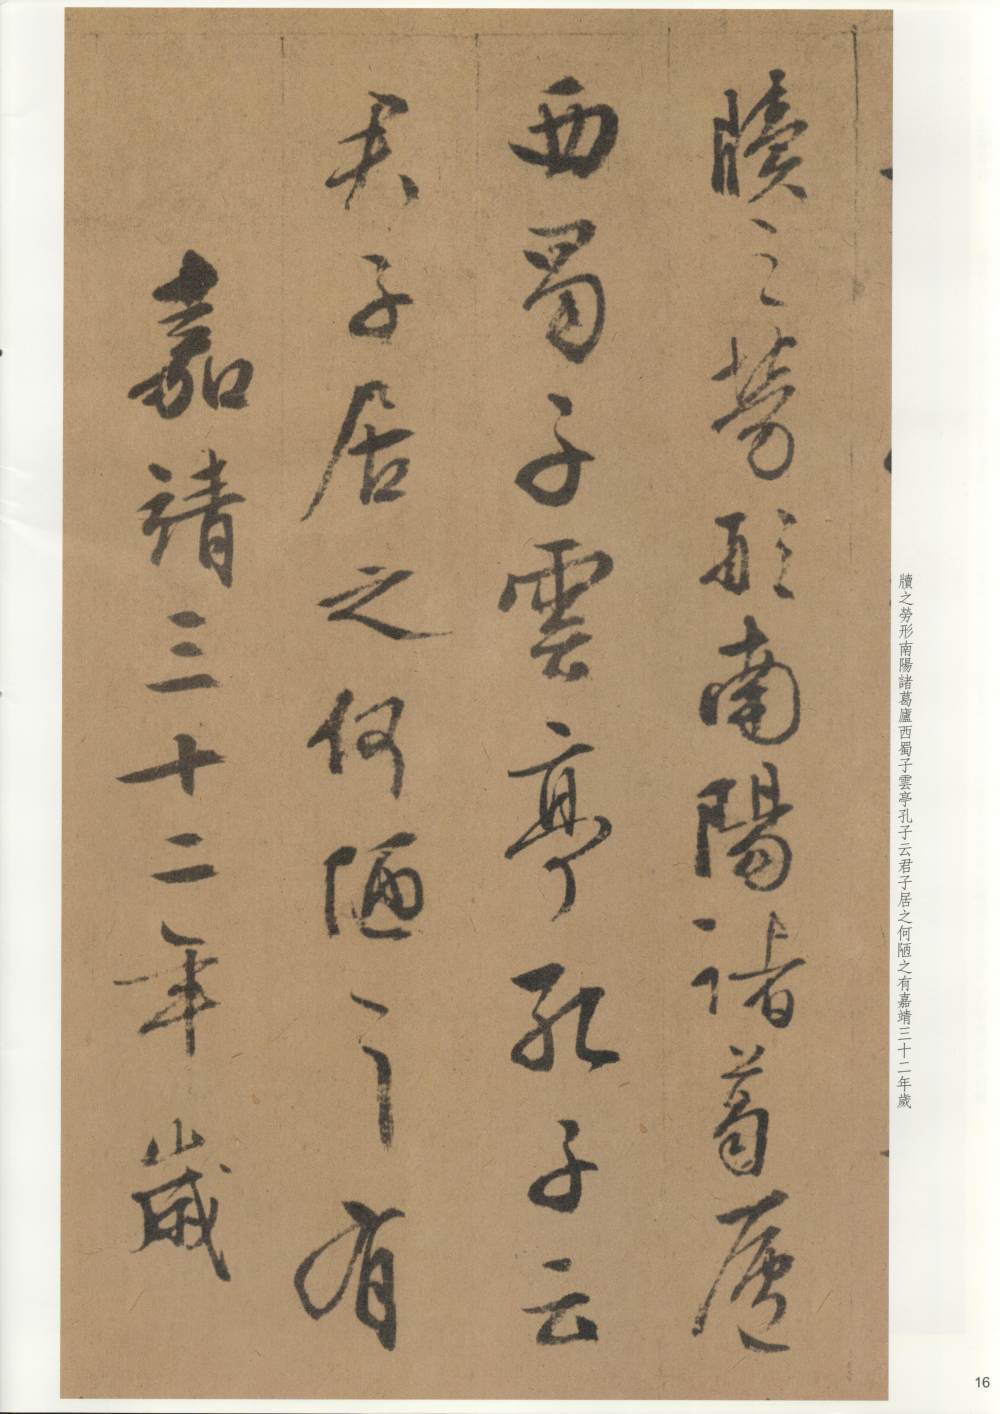 牘之勞形南陽諸葛廬
西蜀子雲亭孔子云
君子居之何陋之有
嘉靖三十二年歲
牘之勞形南陽諸葛廬西蜀子雲亭孔子云君子居之何陋之有嘉靖三十二年歲
16